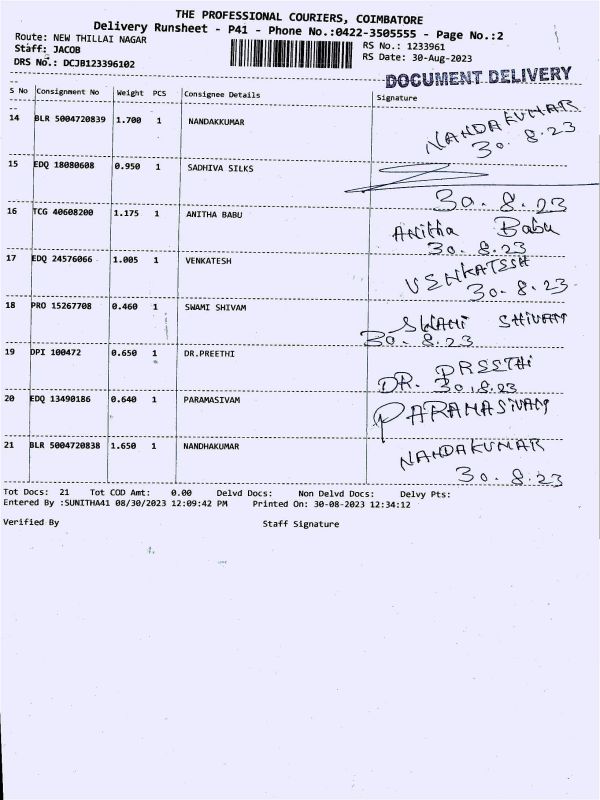 THE PROFESSIONAL COURIERS, COIMBATORE
Delivery Runsheet - P41 - Phone No.:0422-3505555 - Page No.:2
Route: NEW THILLAI NAGAR RS No.: 1233961
Staff: JACOB RS Date: 30-Aug-2023
DRS No.: DCJB123396102
DOCUMENT DELIVERY
S No Consignment No Weight PCS Consignee Details Signature
14 BLR 5004720839 1.700 1 NANDAKKUMAR NANDAKUMAR
30.8.23
15 EDQ 18080608 0.950 1 SADHIVA SILKS
30.8.23
16 TCG 40608200 1.175 1 ANITHA BABU Anitha Babu
30.8.23
17 EDQ 24576066 1.005 1 VENKATESH VENKATESH
30.8.23
18 PRO 15267708 0.460 1 SWAMI SHIVAM SWAMI SHIVAM
30.8.23
19 DPI 100472 0.650 1 DR.PREETHI DR. PREETHI
30.8.23
20 EDQ 13490186 0.640 1 PARAMASIVAM PARAMASIVAM
21 BLR 5004720838 1.650 1 NANDHAKUMAR NANDAKUMAR
30.8.23
Tot Docs: 21 Tot COD Amt: 0.00 Delvd Docs: Non Delvd Docs: Delvy Pts:
Entered By :SUNITHA41 08/30/2023 12:09:42 PM Printed On: 30-08-2023 12:34:12
Verified By Staff Signature